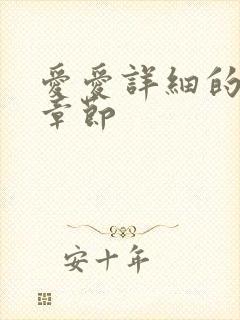 愛愛詳細的
章節
安十年